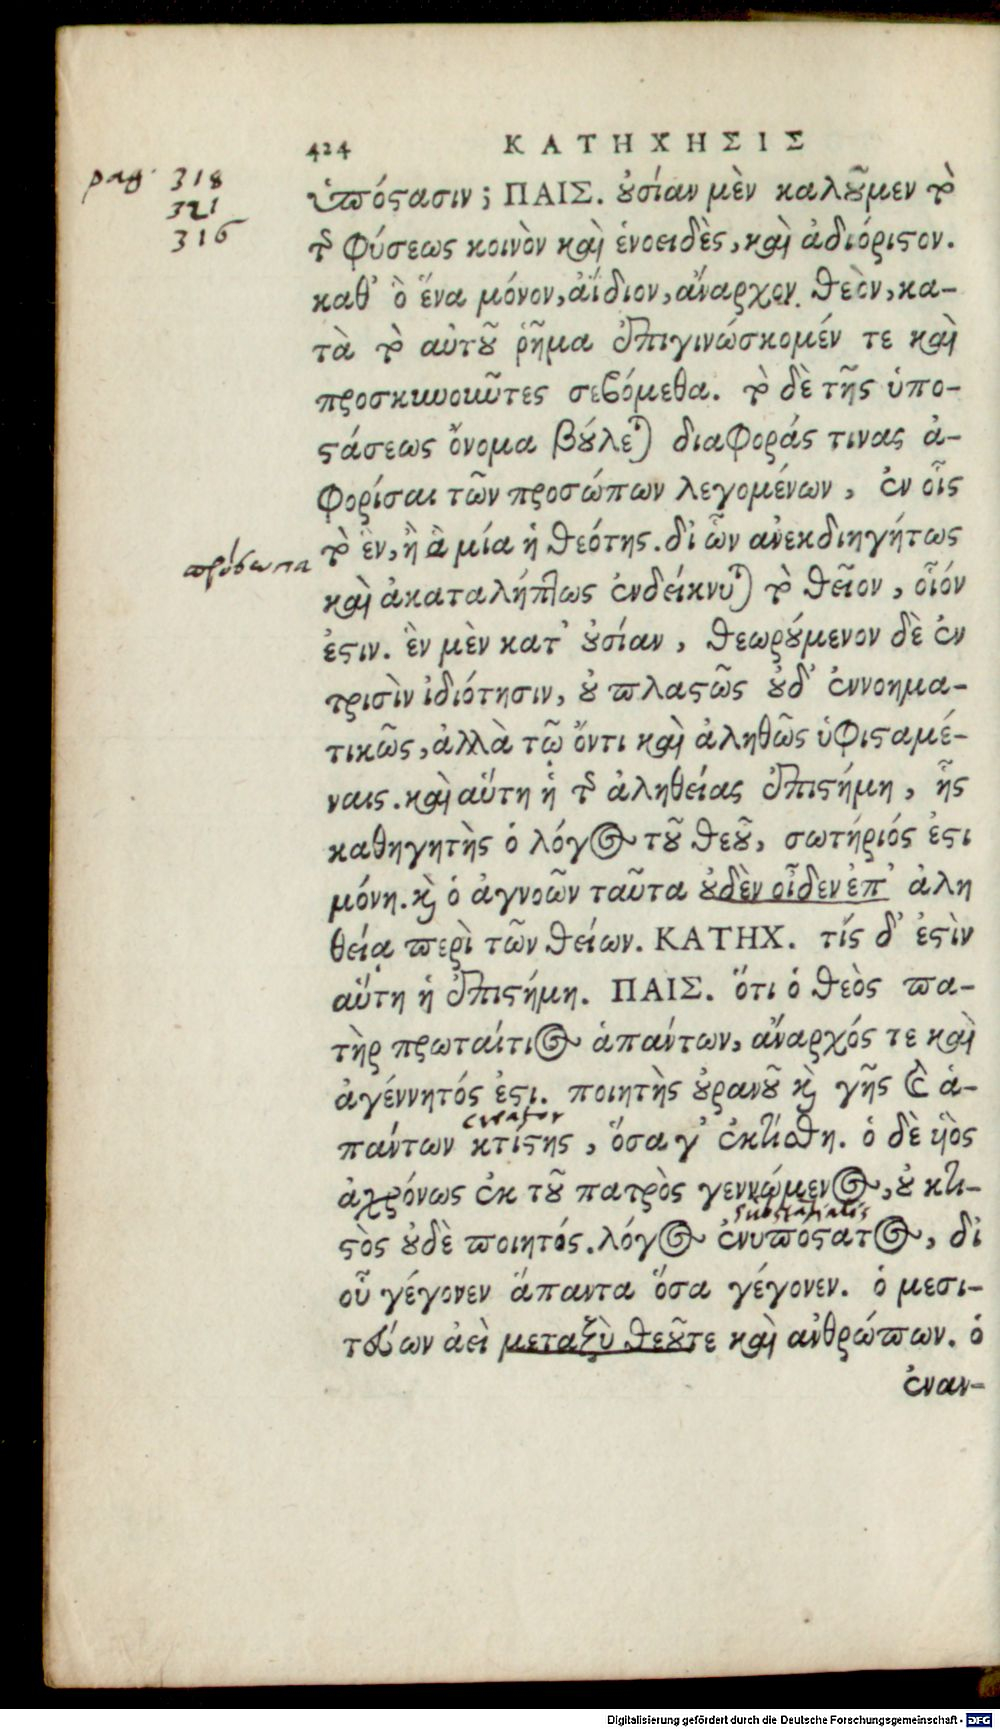 424 ΚΑΤΗΧΗΣΙΣ
pag. 318
321
316
ὑπόϛασιν; ΠΑΙΣ. ȣ̓σίαν μὲν καλȣ͂μεν τὸ
τῆς φύσεως κοινὸν καὶ ἑνοειδὲς, καὶ ἀδιόριϛον.
καθ᾽ ὃ ἕνα μόνον, ἀΐδιον, ἄναρχον θεὸν, κα-
τὰ τὸ αὐτȣ͂ ῥῆμα ἐπιγινώσκομέν τε καὶ
προσκυνοιῶτες σεβόμεθα. τὸ δὲ τῆς ὑπο-
ϛάσεως ὄνομα βȣ́λεται διαφοράς τινας ἀ-
φορίσαι τῶν προσώπων λεγομένων, ἐν οἷς
πρόσωπα
τὸ ἓν, ἢ ἃ μία ἡ θεότης. δι᾽ ὧν ἀνεκδιηγήτως
καὶ ἀκαταλήπτως ἐνδείκνυται τὸ θεῖον, οἷόν
ἐϛιν. ἓν μὲν κατ᾽ ȣ̓σίαν, θεωρȣ́μενον δὲ ἐν
τρισὶν ἰδιότησιν, ȣ̓ πλαϛῶς ȣ̓δ᾽ ἐννοημα-
τικῶς, ἀλλὰ τῷ ὄντι καὶ ἀληθῶς ὑφιϛαμέ-
ναις. καὶ αὕτη ἡ τῆς ἀληθείας ἐπιϛήμη, ἧς
καθηγητὴς ὁ λόγος τȣ͂ θεȣ͂, σωτήριός ἐϛι
μόνη. κϗ ὁ ἀγνοῶν ταῦτα ȣ̓δὲν οἶδεν ἐπ᾽ ἀλη
θείᾳ περὶ τῶν θείων. ΚΑΤΗΧ. τίς δ᾽ ἐϛὶν
αὕτη ἡ ἐπιϛήμη. ΠΑΙΣ. ὅτι ὁ θεὸς πα-
τὴρ πρωταίτιος ἁπάντων, ἄναρχός τε καὶ
ἀγέννητός ἐϛι. ποιητὴς ȣ̓ρανȣ͂ κϗ γῆς ἐ ἁ-
creator
πάντων κτίϛης, ὅσα γ᾽ ἐκτίσθη. ὁ δὲ ὑὸς
ἀχρόνως ἐκ τȣ͂ πατρὸς γεννώμενος, ȣ̓ κτι-
substatialis
ϛὸς ȣ̓δὲ ποιητός. λόγος ἐνυπόϛατος, δι᾽
οὗ γέγονεν ἅπαντα ὅσα γέγονεν. ὁ μεσι-
τεύων ἀεὶ μεταξὺ θεȣ͂ τε καὶ ἀνθρώπων. ὁ
ἐναν-
Digitalisierung gefördert durch die Deutsche Forschungsgemeinschaft - DFG